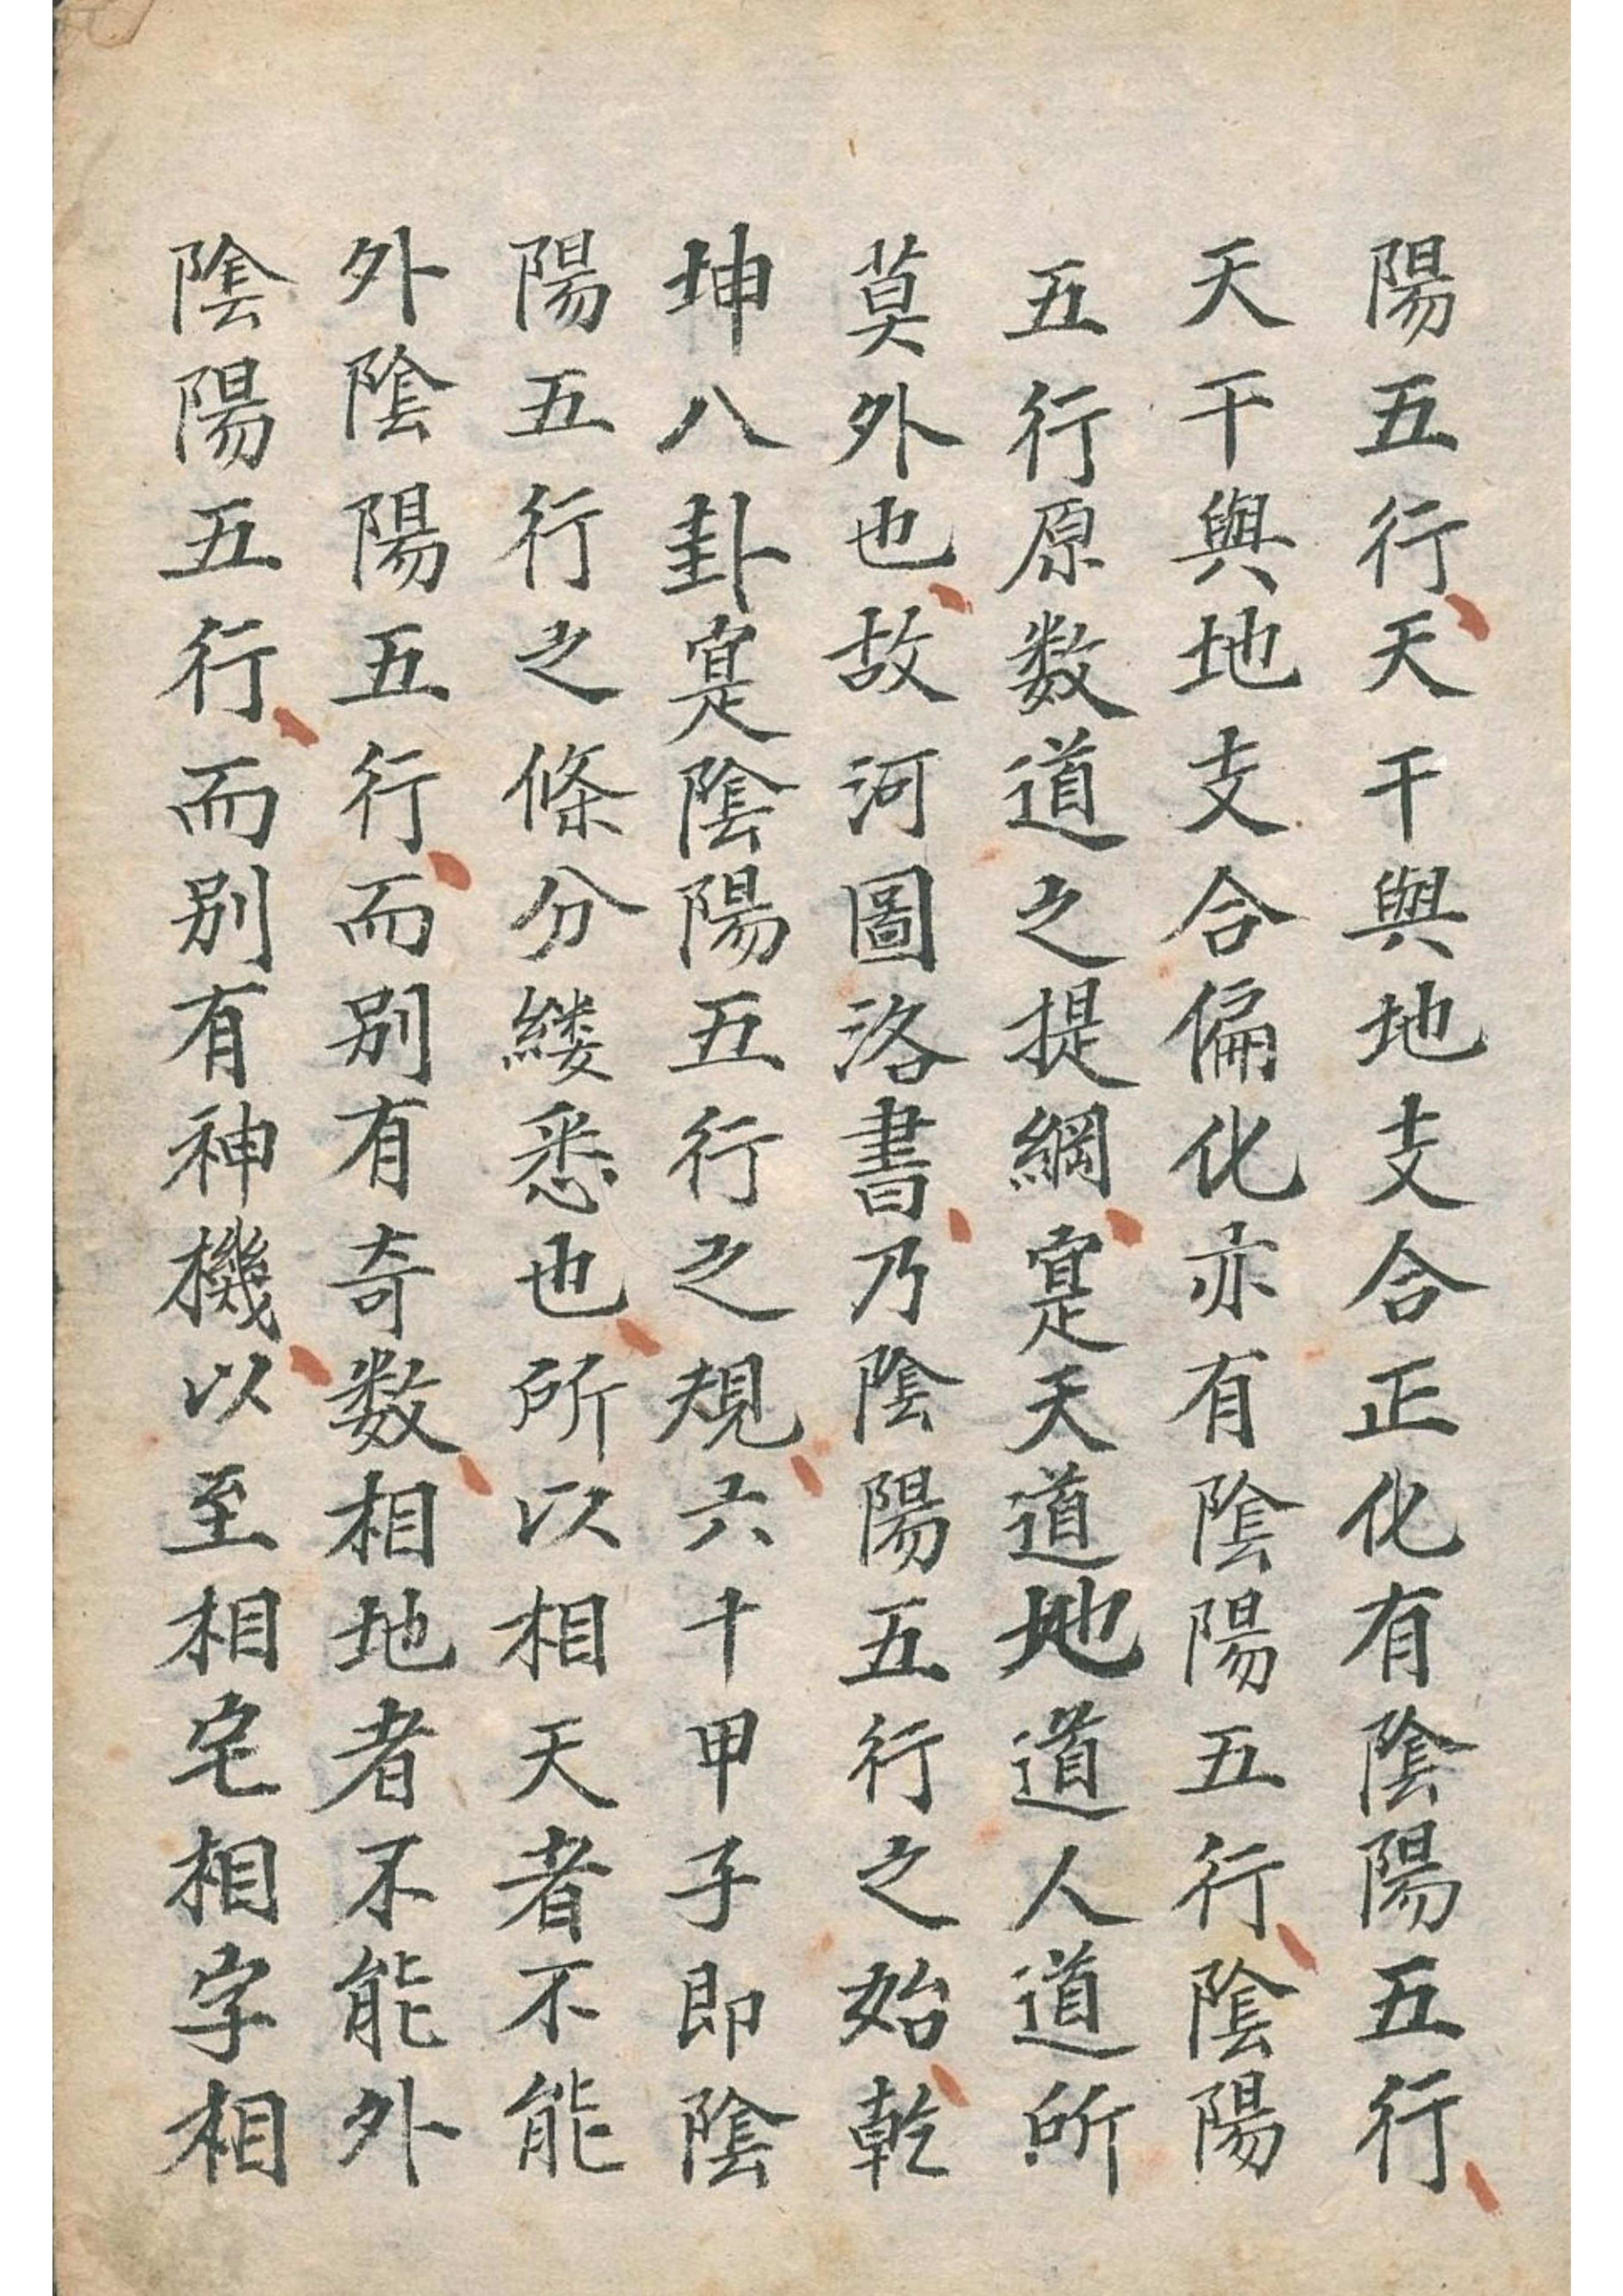 陽五行天干與地支合正化有陰陽五行
天干與地支合偏化亦有陰陽五行陰陽
五行原数道之提綱寔天道地道人道所
莫外也故河圖洛書乃陰陽五行之始乾
坤八卦寔陰陽五行之規六十甲子即陰
陽五行之條分縷悉也所以相天者不能
外陰陽五行而别有奇数相地者不能外
陰陽五行而别有神機以至相宅相字相